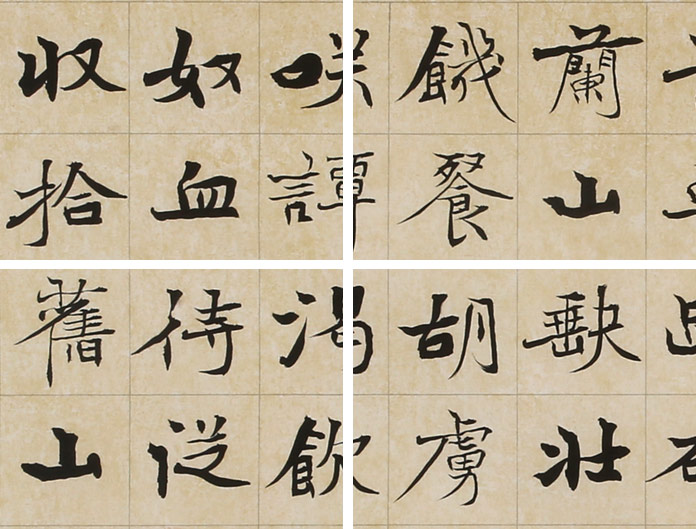 蘭山缺壯
饑餐胡虜
咲譚渴飲
奴血待從
收拾舊山